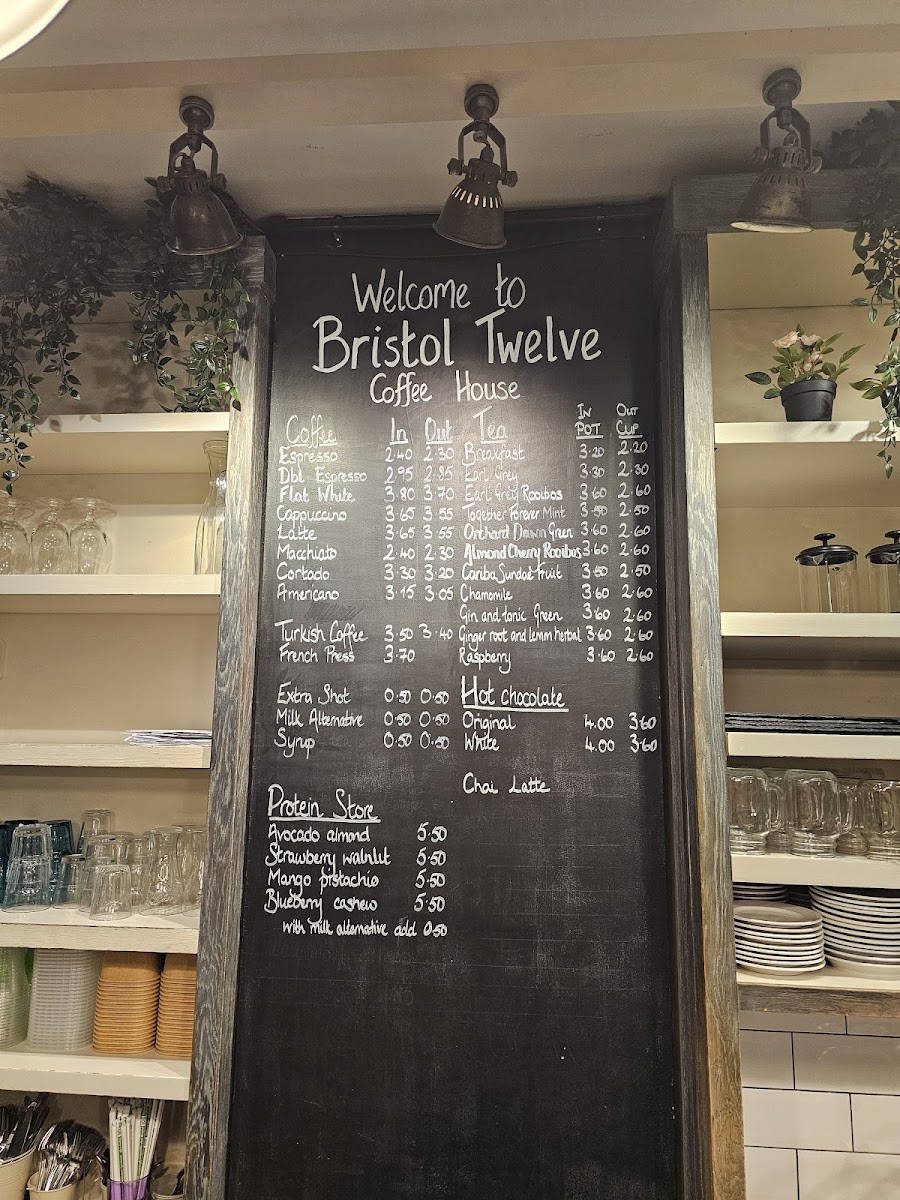 Welcome to
Bristol Twelve
Coffee House
Coffee In Out
Espresso 2.40 2.30
Dbl Espresso 2.95 2.85
Flat White 3.80 3.70
Cappuccino 3.65 3.55
Latte 3.65 3.55
Macchiato 2.40 2.30
Cortado 3.30 3.20
Americano 3.15 3.05
Turkish Coffee 3.50 3.40
French Press 3.70
Extra Shot 0.50 0.50
Milk Alternative 0.50 0.50
Syrup 0.50 0.50
Protein Store
Avocado almond 5.50
Strawberry walnut 5.50
Mango pistachio 5.50
Blueberry cashew 5.50
with milk alternative add 0.50
Tea IN POT OUT CUP
Breakfast 3.20 2.20
Earl Grey 3.30 2.30
Earl Grey Rooibos 3.60 2.60
Together Forever Mint 3.50 2.50
Orchard Green 3.60 2.60
Almond Cherry Rooibos 3.60 2.60
Cariba Fruit 3.50 2.50
Chamomile 3.60 2.60
Gin and tonic Green 3.60 2.60
Ginger root and lemon herbal 3.60 2.60
Raspberry 3.60 2.60
Hot chocolate
Original 4.00 3.60
White 4.00 3.60
Chai Latte